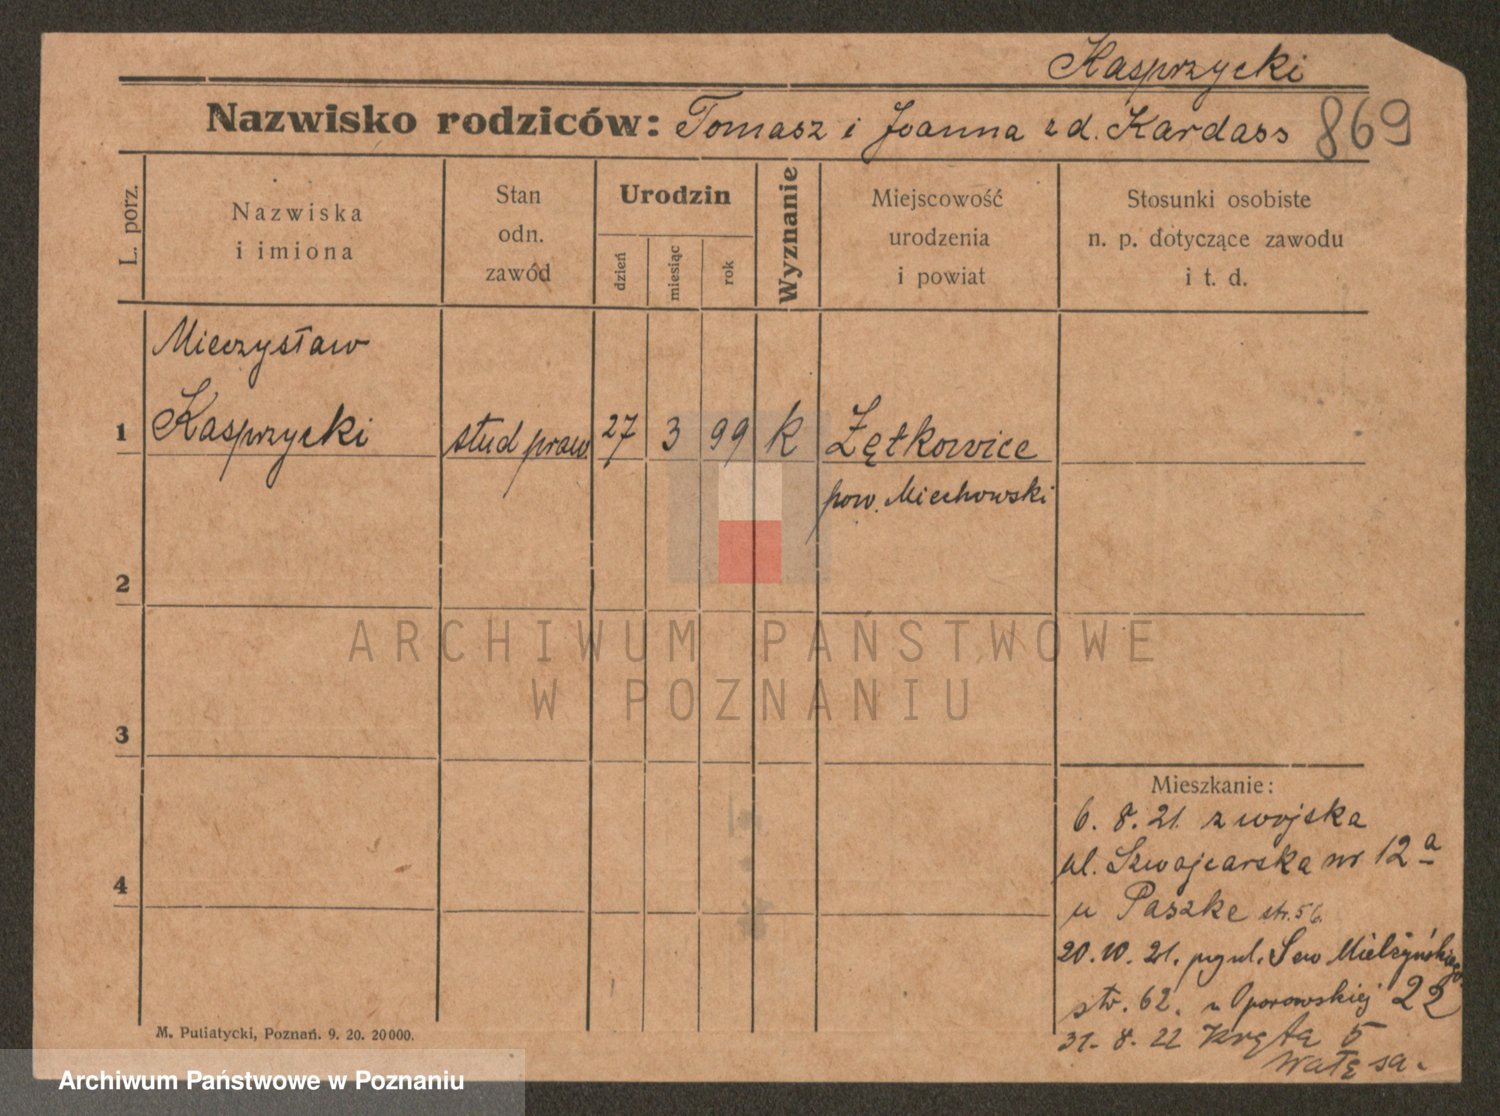 Kasprzycki
Nazwisko rodziców: Tomasz i Joanna z d. Kardass 869
L. porz.
Nazwiska
i imiona
Stan
odn.
zawód
Urodzin
dzień
miesiąc
rok
Wyznanie
Miejscowość
urodzenia
i powiat
Stosunki osobiste
n. p. dotyczące zawodu
i t. d.
Mieczysław
1 Kasprzycki stud praw. 27 3 99 k Żętkowice
pow. Miechowski
2
ARCHIWUM PAŃSTWOWE
W POZNANIU
3
4
Mieszkanie:
6. 8. 21. z wojska
ul. Szwajcarska nr 12 a
u Paszke str. 56.
20. 10. 21. Sew Mielżyńskiego
str. 62. u Oporowskiej 22
31. 8. 22 Kręta 5
Wałęsa.
M. Putiatycki, Poznań. 9. 20. 20000.
Archiwum Państwowe w Poznaniu